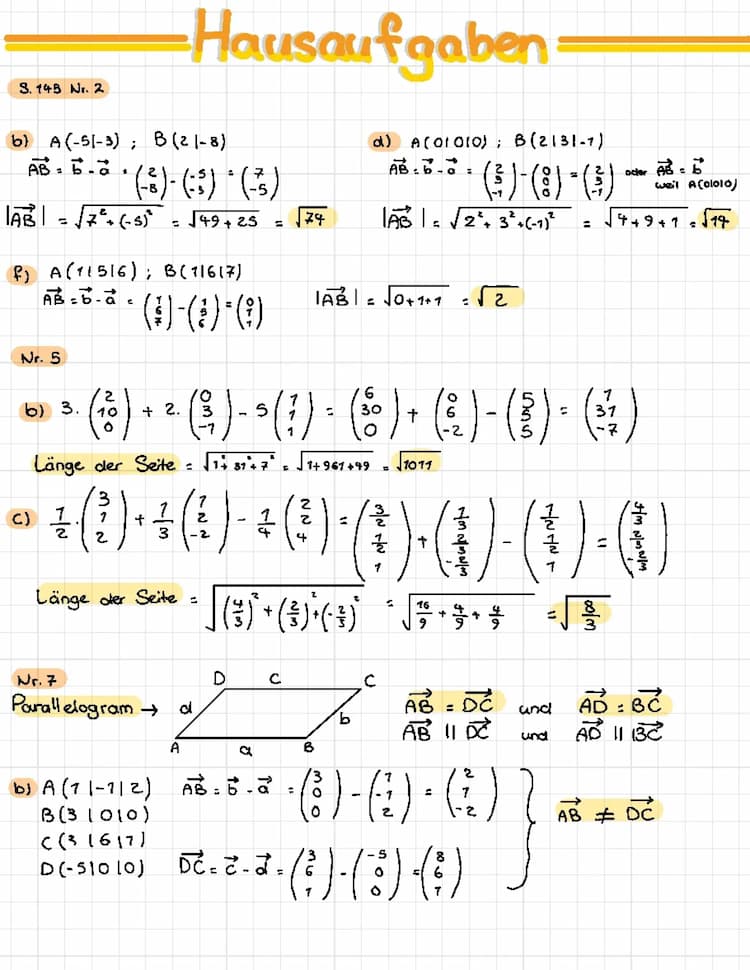 Hausaufgaben
S. 145 Nr. 2
b) A(-5|-3) ; B(2|-8)
AB = b - a = (2 -8) - (-5 -3) = (7 -5)
|AB| = √7² + (-5)² = √49 + 25 = √74
d) A(0|0|0) ; B(2|3|-1)
AB = b - a = (2 3 -1) - (0 0 0) = (2 3 -1) oder AB = b
weil A(0|0|0)
|AB| = √2² + 3² + (-1)² = √4 + 9 + 1 = √14
f) A(1|5|6) ; B(1|6|7)
AB = b - a = (1 6 7) - (1 5 6) = (0 1 1) |AB| = √0+1+1 = √2
Nr. 5
b) 3. (2 10 0) + 2. (0 3 -1) - 5 (1 1 1) = (6 30 0) + (0 6 -2) - (5 5 5) = (1 31 -7)
Länge der Seite = √1² + 31² + 7² = √1+961+49 = √1011
c) 1/2 · (3 1 2) + 1/3 (1 2 -2) - 1/4 (2 2 4) = (3/2 1/2 1) + (1/3 2/3 -2/3) - (1/2 1/2 1) = (4/3 2/3 -2/3)
Länge der Seite = √(4/3)² + (2/3)² + (-2/3)² = √16/9 + 4/9 + 4/9 = √8/3
Nr. 7
Parallelogram →
D C C
d b
A a B
AB = DC und AD = BC
AB || DC und AD || BC
b) A(1|-1|2) AB = b - a = (3 0 0) - (1 -1 2) = (2 1 -2)
B(3|0|0)
C(3|6|1)
D(-5|0|0) DC = c - d = (3 6 1) - (-5 0 0) = (8 6 1)
AB ≠ DC